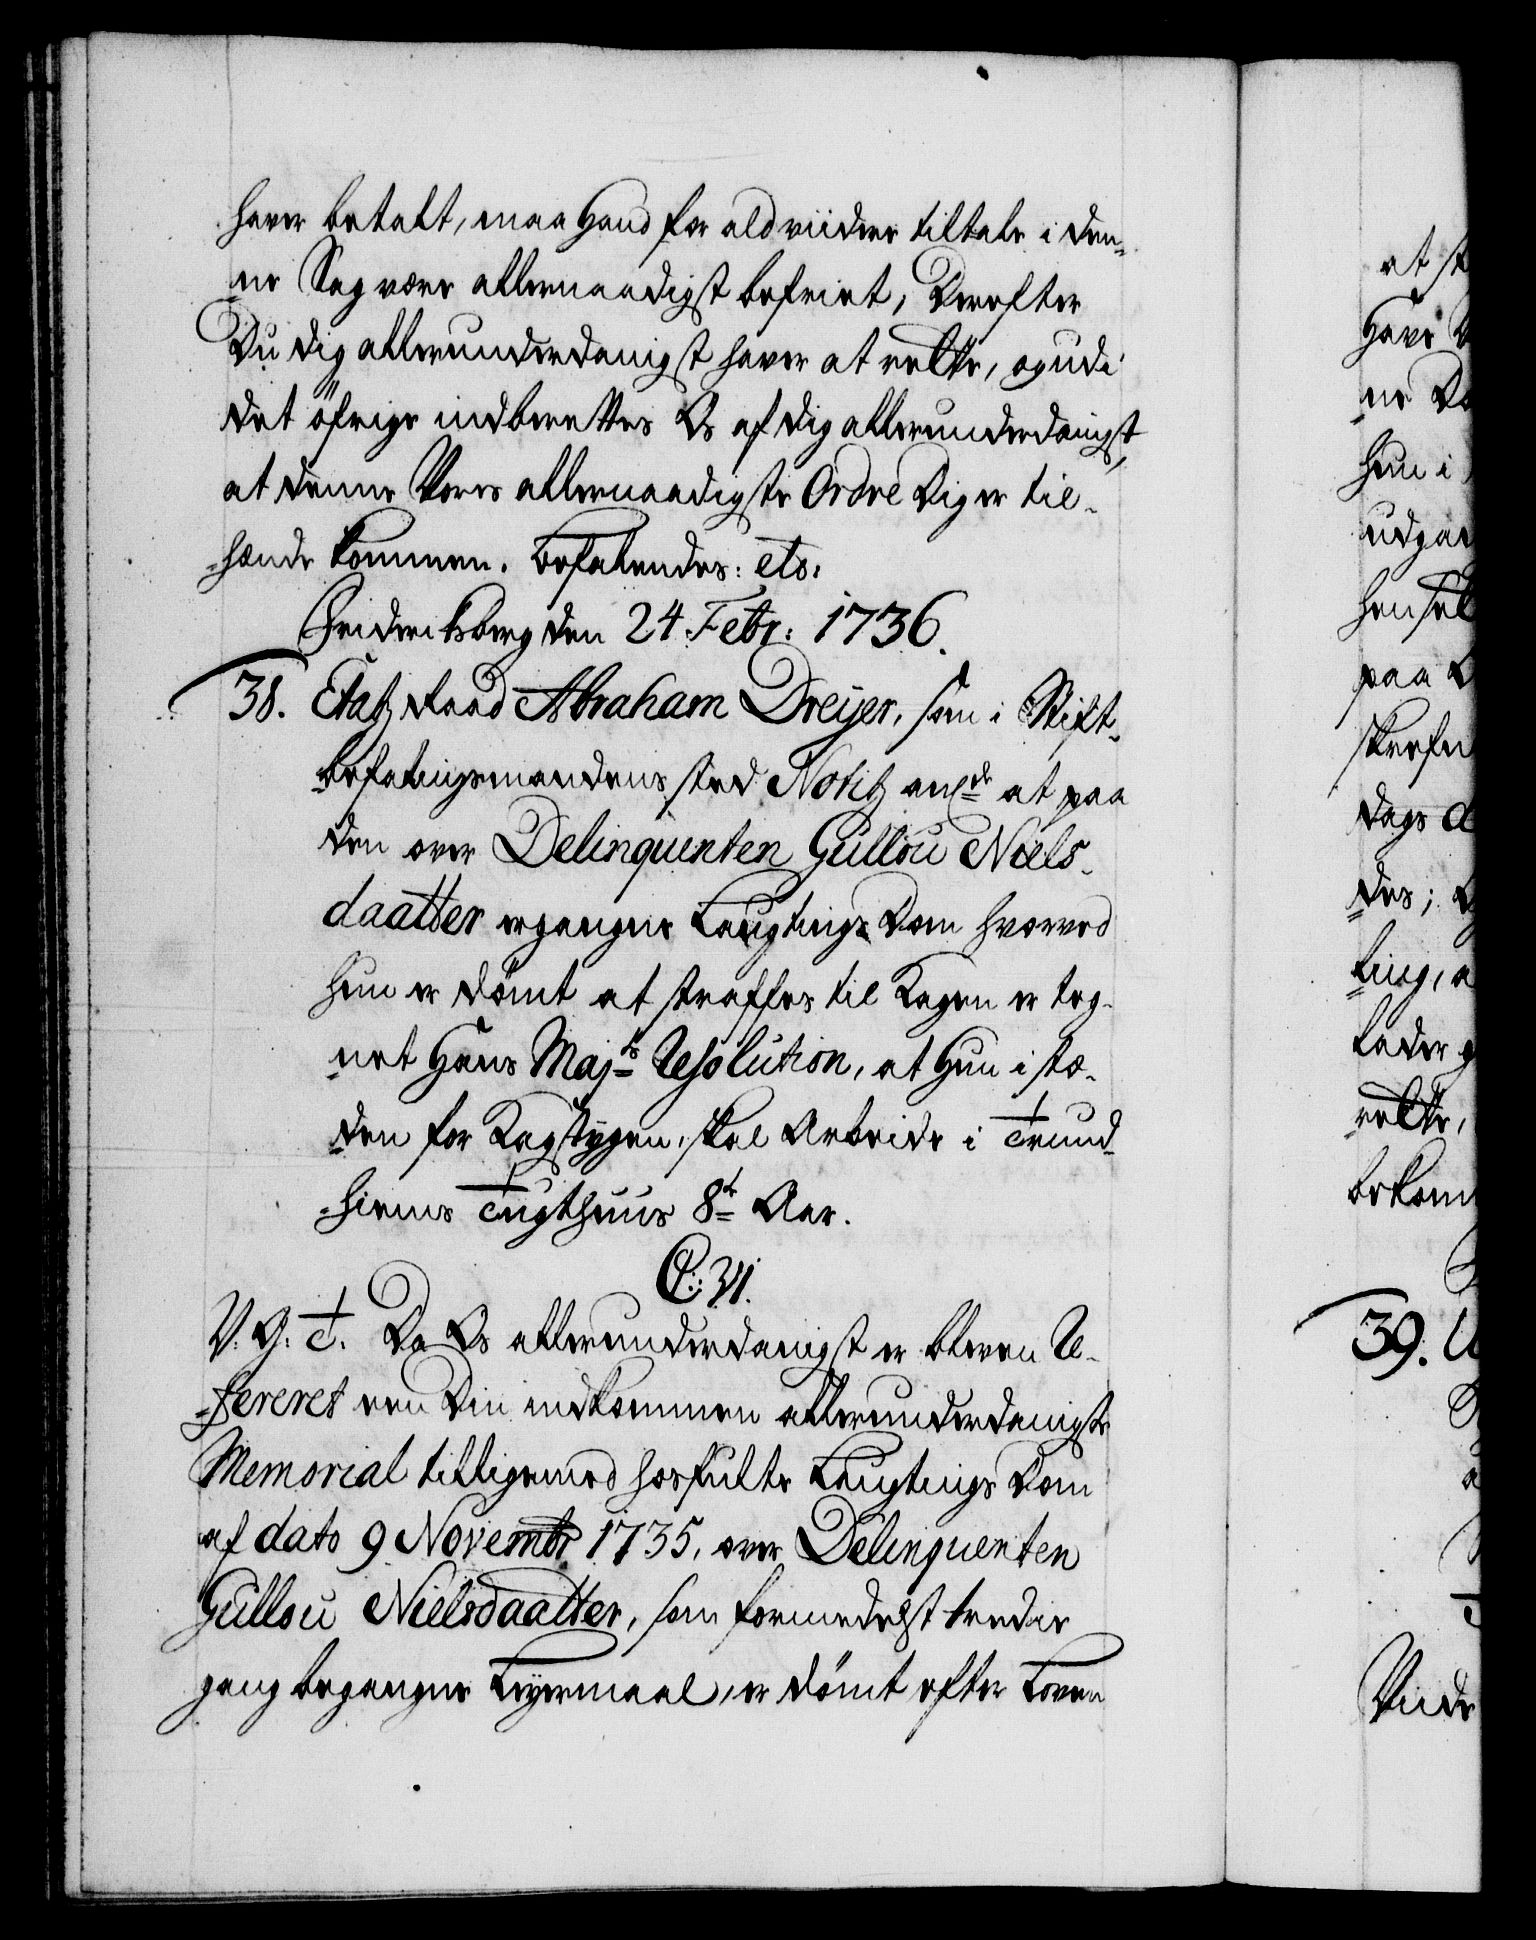 haver betalt, maa Hand for ald viidere tiltale i den-
ne Sag være allernaadigst befriet, Derefter
Du dig allerunderdanigst haver at rette, og udi
det öfrige indberettes Os af dig allerunderdanigst,
at denne Vores allernaadigste Ordre dig er til-
hænde kommen. Befalendes: etc:
Friderichsberg den 24 Febr: 1736.
38. Etatz Raad Abraham Dreÿer, som i Stift-
befalingsmandens sted Notitz at paa
den over Delinquenten Gulloü Niels-
daatter ergangne Laugtings Dom hvorved
hun er dömt at straffes til Kagen er teg-
net Hans Majts Resolution, at Hun i stæ-
den for Kagstrygen, skal Arbeide i Trund-
hiems Tugthuus 8t Aar.
C: VI.
V. G. T. Da Os allerunderdanigst er bleven Re-
fereret een Din indkommen allerunderdanigste
Memorial tilligemed hosfulte Laugtings Dom
af dato 9 Novembr 1735, over Delinquenten
Gulloü Nielsdaatter, som formedelst tredie
gang begangne Leÿermaal, er dömt efter Loven
at st
ne
hun i
udgan
paa
dags
des;
ting, a
lader
rette,
bekom
39.
Vide